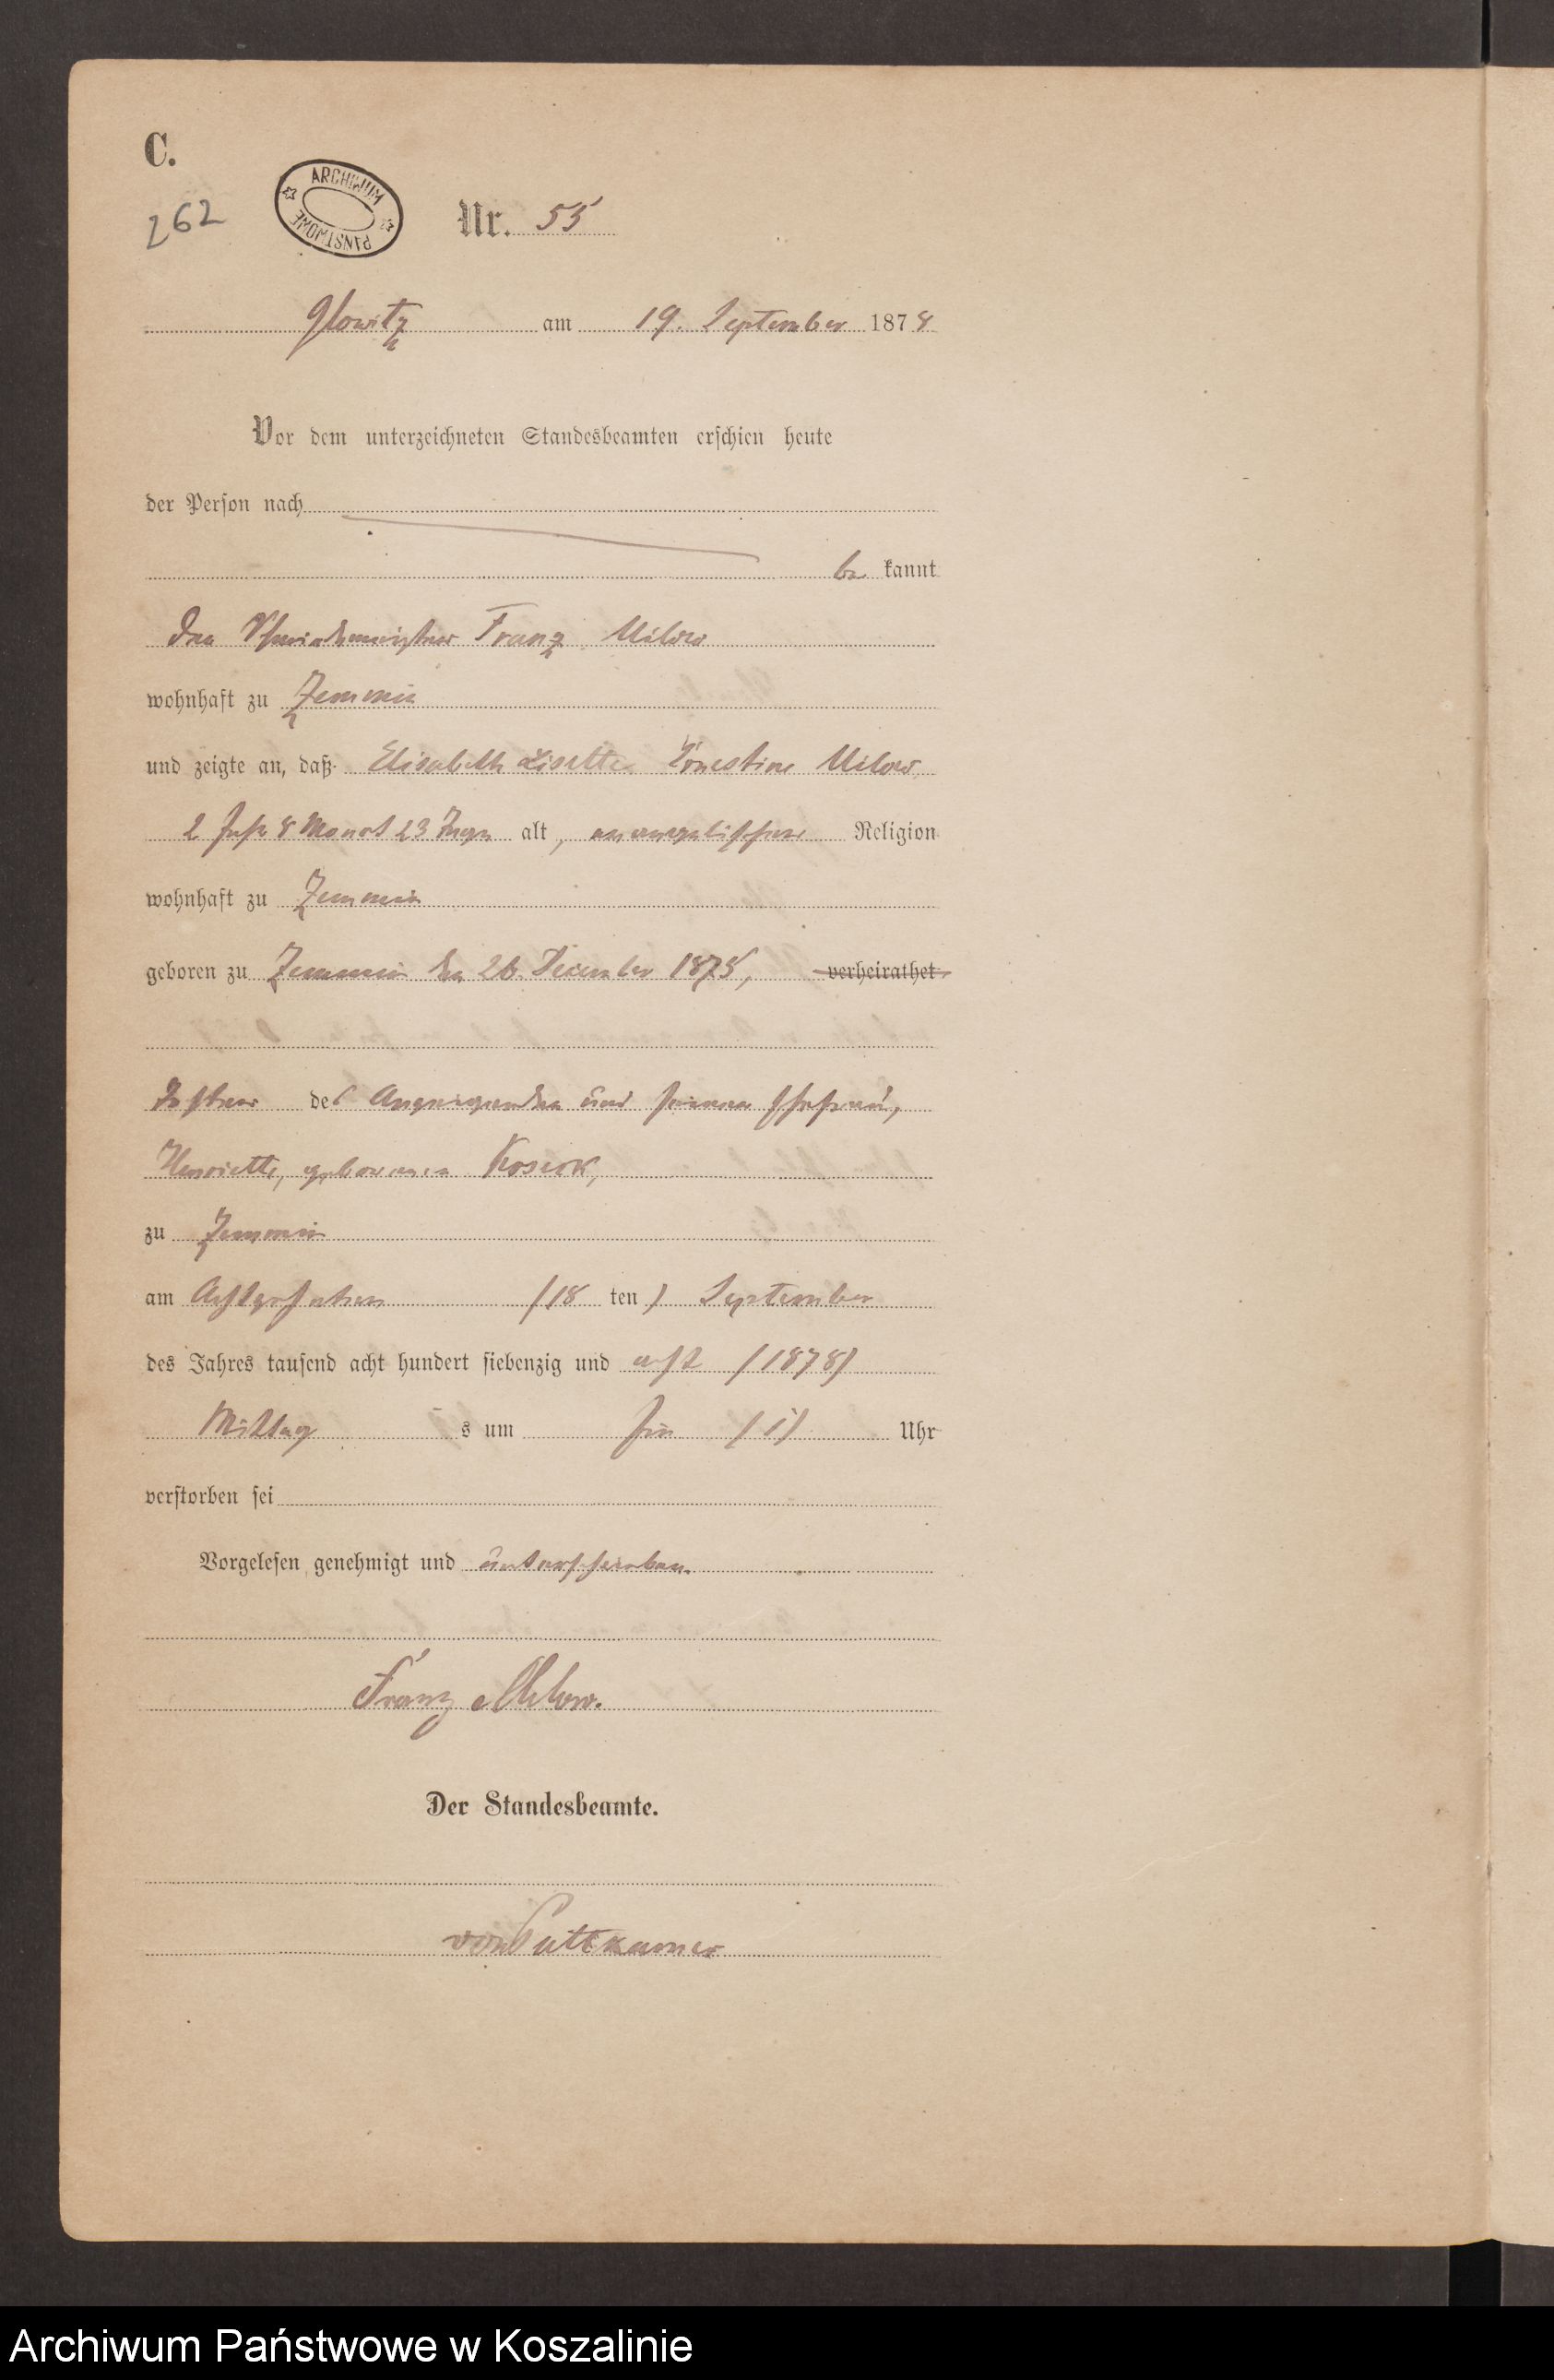 C.
262
ARCHIWUM PAŃSTWOWE
Nr. 55
Glowitz am 19. September 1878
Vor dem unterzeichneten Standesbeamten erschien heute
der Person nach
be kannt
der Schmiedemeister Franz Milow
wohnhaft zu Zemmin
und zeigte an, daß Elisabeth Lisette Ernestine Milow
2 Jahr 8 Monat 23 Tage alt, evangelischer Religion
wohnhaft zu Zemmin
geboren zu Zemmin den 26. December 1875, verheirathet
Tochter des Anzeigenden und seiner Ehefrau,
Henriette, geborenen
zu Zemmin
am Achtzehnten /18 ten/ September
des Jahres tausend acht hundert siebenzig und acht /1878/
Mittag s um Ein /1/ Uhr
verstorben sei
Vorgelesen, genehmigt und unterschrieben.
Franz Milow.
Der Standesbeamte.
von Puttkamer
Archiwum Państwowe w Koszalinie